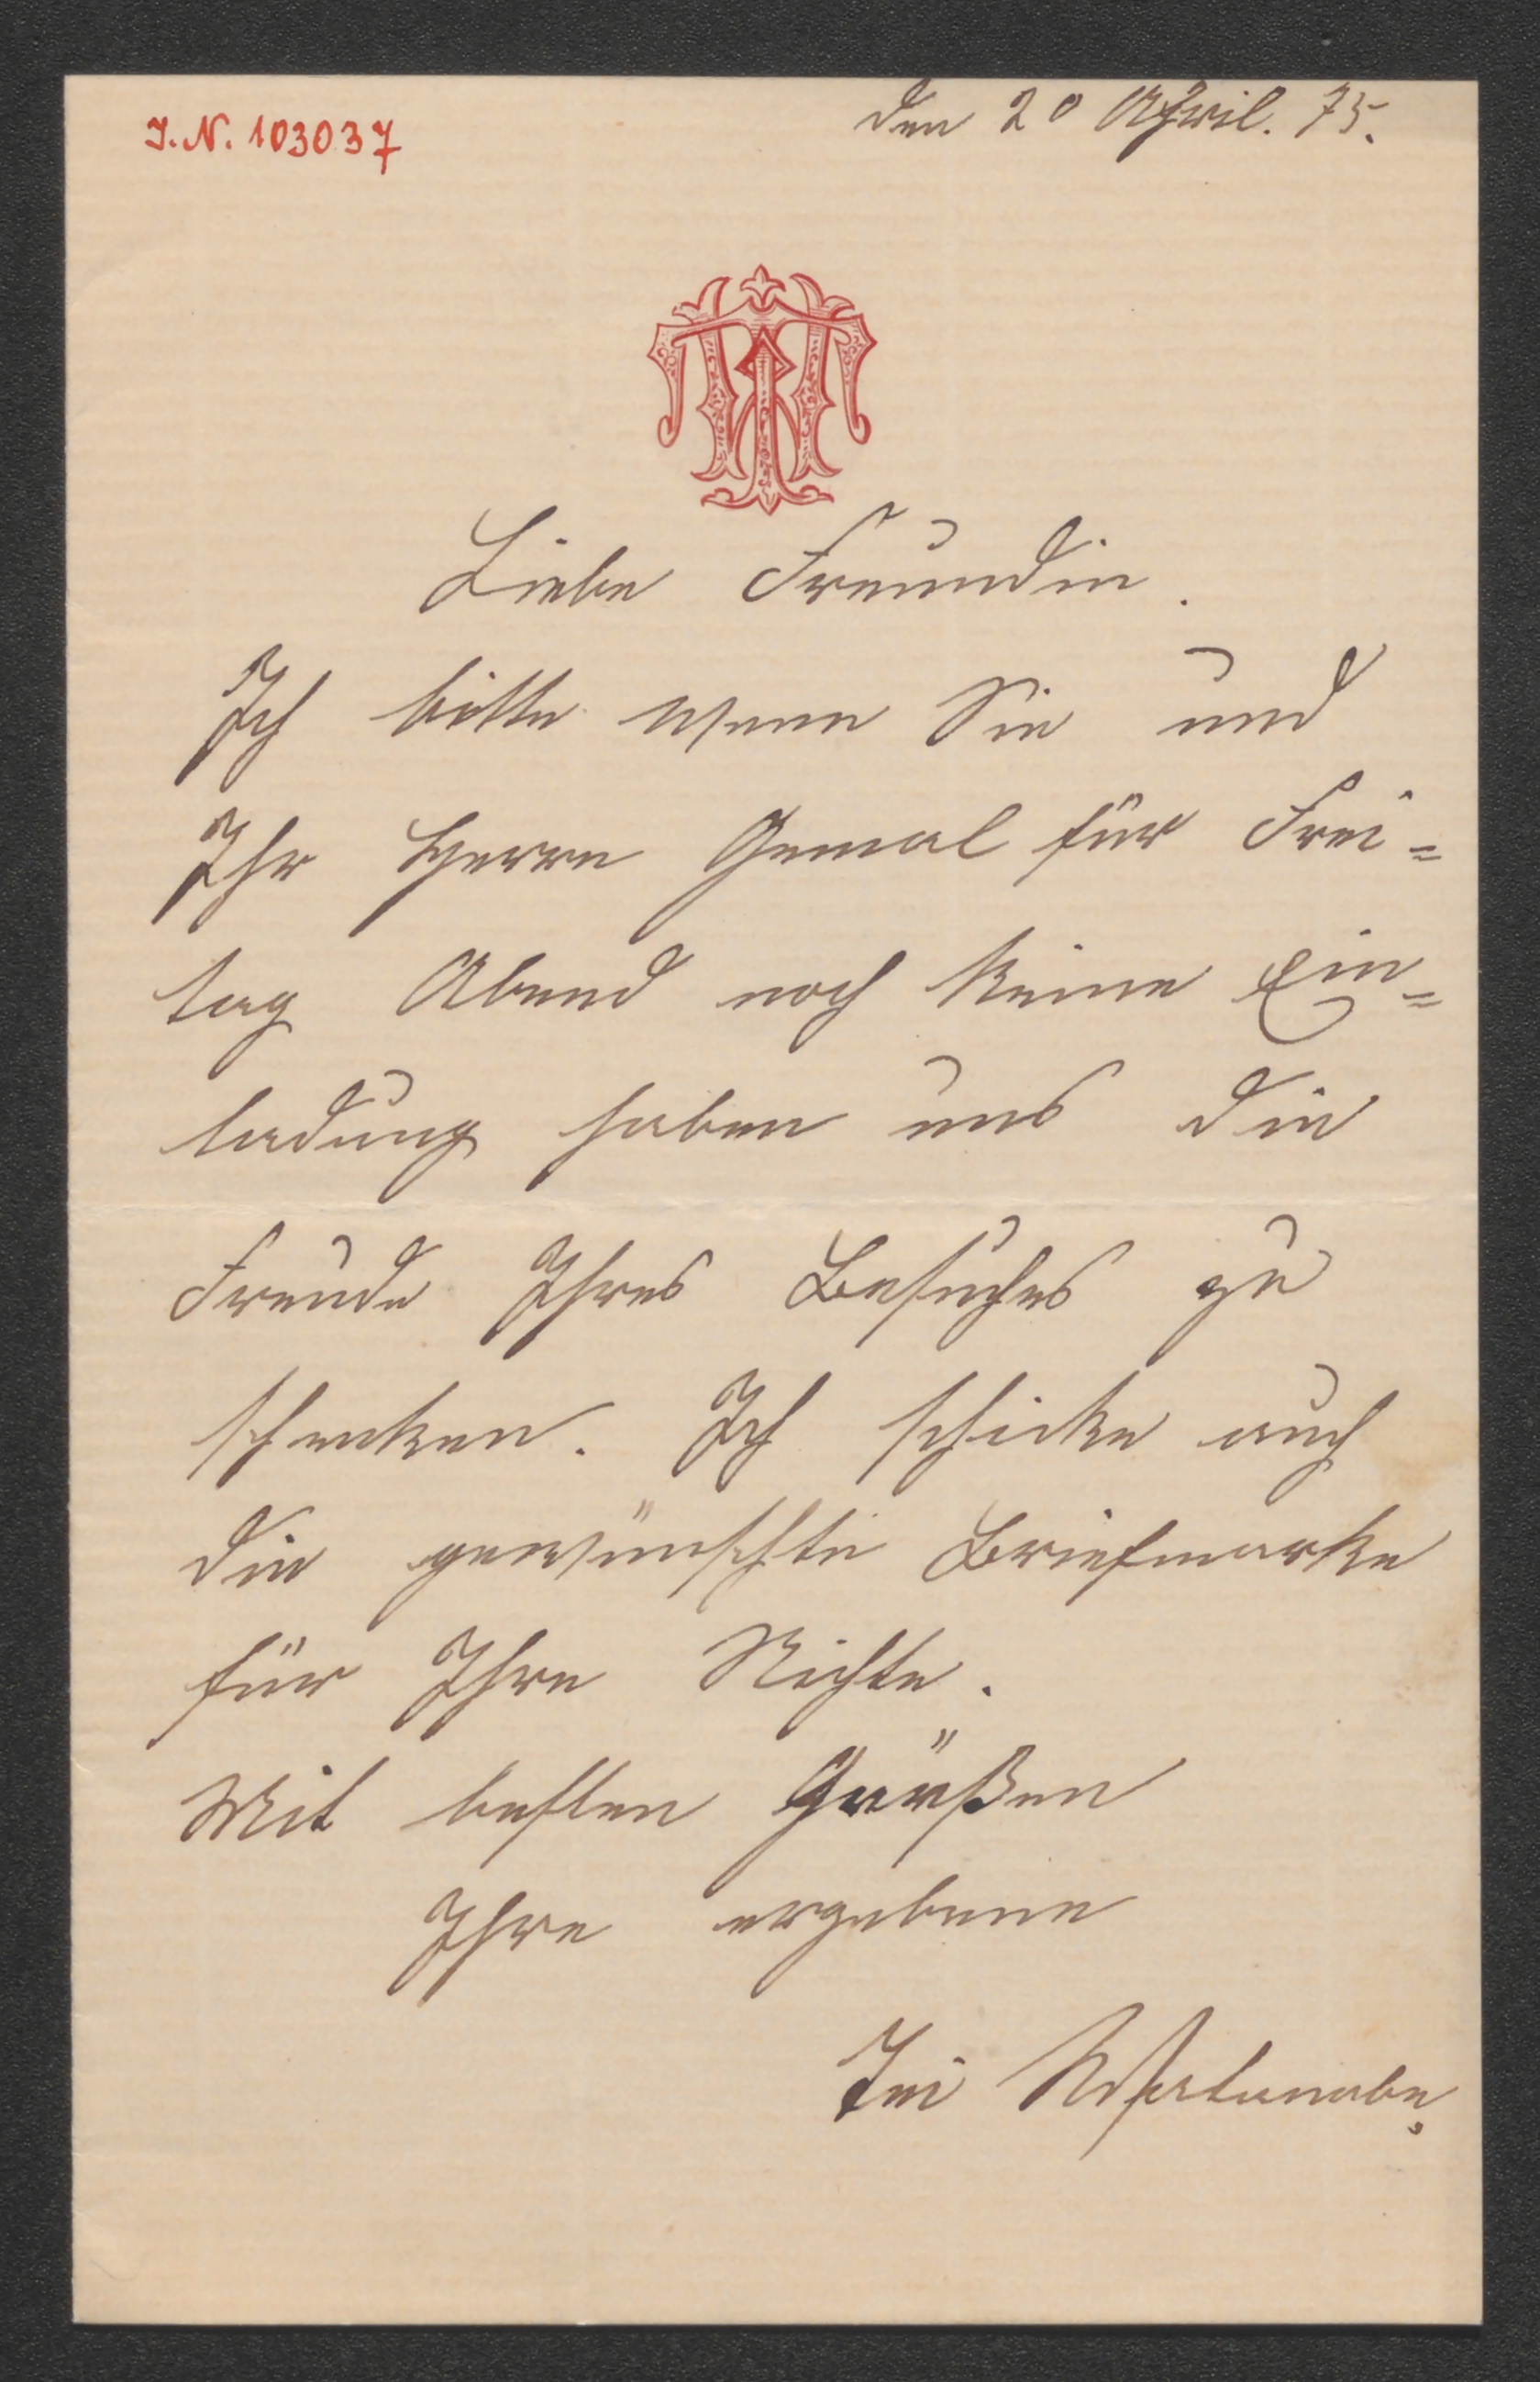 I. N. 103037
den 20 April. 75.
Liebe Freundin.
Ich bitte wenn Sie und
Ihr Herrn Gemal für Frei=
tag Abend noch keine Ein=
ladung haben uns die
Freude Ihres Besuches zu
schenken. Ich schicke auch
die gewünschte Briefmarke
für Ihre Nichte.
Mit besten Grüßen
Ihre ergebene
Watanabe.